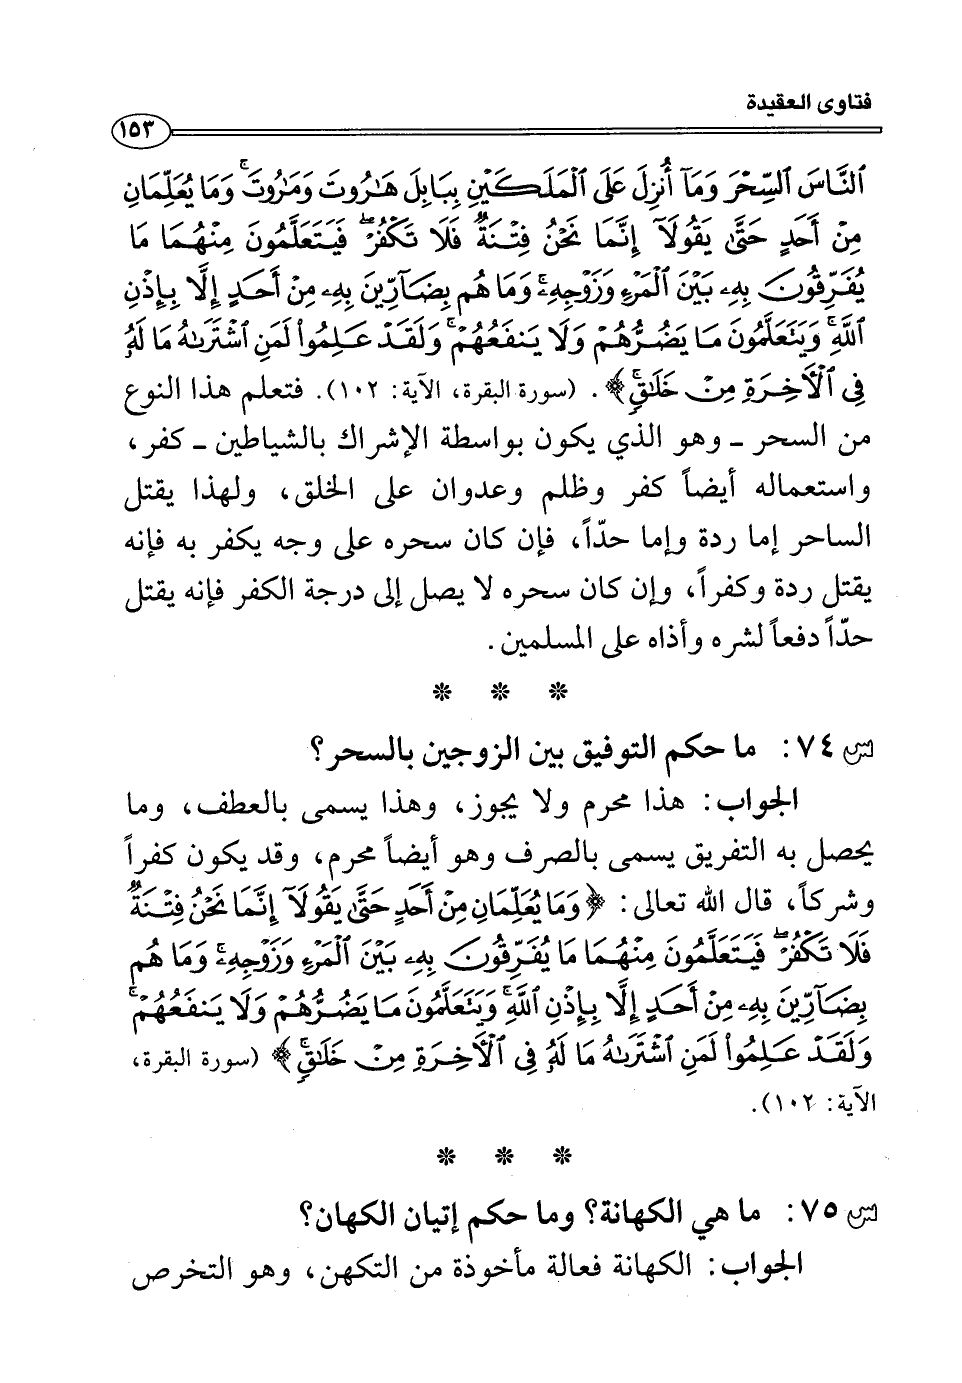 فتاوى العقيدة
١٥٣
ٱلنَّاسَ ٱلسِّحْرَ وَمَآ أُنزِلَ عَلَى ٱلْمَلَكَيْنِ بِبَابِلَ هَٰرُوتَ وَمَٰرُوتَ ۚ وَمَا يُعَلِّمَانِ
مِنْ أَحَدٍ حَتَّىٰ يَقُولَآ إِنَّمَا نَحْنُ فِتْنَةٌ فَلَا تَكْفُرْ ۖ فَيَتَعَلَّمُونَ مِنْهُمَا مَا
يُفَرِّقُونَ بِهِۦ بَيْنَ ٱلْمَرْءِ وَزَوْجِهِۦ ۚ وَمَا هُم بِضَآرِّينَ بِهِۦ مِنْ أَحَدٍ إِلَّا بِإِذْنِ
ٱللَّهِ ۚ وَيَتَعَلَّمُونَ مَا يَضُرُّهُمْ وَلَا يَنفَعُهُمْ ۚ وَلَقَدْ عَلِمُوا۟ لَمَنِ ٱشْتَرَىٰهُ مَا لَهُۥ
فِى ٱلْءَاخِرَةِ مِنْ خَلَٰقٍ ۚ﴾ . (سورة البقرة، الآية: ١٠٢). فتعلم هذا النوع
من السحر ـ وهو الذي يكون بواسطة الإشراك بالشياطين ـ كفر،
واستعماله أيضاً كفر وظلم وعدوان على الخلق، ولهذا يقتل
الساحر إما ردة وإما حدّاً، فإن كان سحره على وجه يكفر به فإنه
يقتل ردة وكفراً، وإن كان سحره لا يصل إلى درجة الكفر فإنه يقتل
حدّاً دفعاً لشره وأذاه على المسلمين.
* * *
س ٧٤: ما حكم التوفيق بين الزوجين بالسحر؟
الجواب: هذا محرم ولا يجوز، وهذا يسمى بالعطف، وما
يحصل به التفريق يسمى بالصرف وهو أيضاً محرم، وقد يكون كفراً
وشركاً، قال الله تعالى: ﴿وَمَا يُعَلِّمَانِ مِنْ أَحَدٍ حَتَّىٰ يَقُولَآ إِنَّمَا نَحْنُ فِتْنَةٌ
فَلَا تَكْفُرْ ۖ فَيَتَعَلَّمُونَ مِنْهُمَا مَا يُفَرِّقُونَ بِهِۦ بَيْنَ ٱلْمَرْءِ وَزَوْجِهِۦ ۚ وَمَا هُم
بِضَآرِّينَ بِهِۦ مِنْ أَحَدٍ إِلَّا بِإِذْنِ ٱللَّهِ ۚ وَيَتَعَلَّمُونَ مَا يَضُرُّهُمْ وَلَا يَنفَعُهُمْ ۚ
وَلَقَدْ عَلِمُوا۟ لَمَنِ ٱشْتَرَىٰهُ مَا لَهُۥ فِى ٱلْءَاخِرَةِ مِنْ خَلَٰقٍ ۚ﴾ (سورة البقرة،
الآية: ١٠٢).
* * *
س ٧٥: ما هي الكهانة؟ وما حكم إتيان الكهان؟
الجواب: الكهانة فعالة مأخوذة من التكهن، وهو التخرص